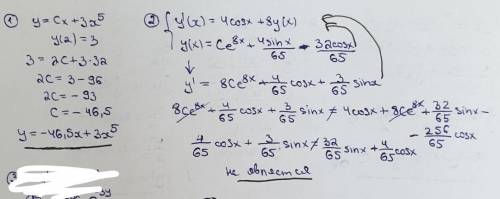 ① y = Cx + 3x⁵
y(2) = 3
3 = 2C + 3·32
2C = 3 - 96
2C = -93
C = -46,5
y = -46,5x + 3x⁵
② { y'(x) = 4cosx + 8y(x)
y(x) = Ce⁸ˣ + 4sinx/65 - 32cosx/65
↓
y' = 8Ce⁸ˣ + 4/65 cosx + 3/65 sinx
8Ce⁸ˣ + 4/65 cosx + 3/65 sinx ≠ 4cosx + 8Ce⁸ˣ + 32/65 sinx -
- 256/65 cosx
4/65 cosx + 3/65 sinx ≠ 32/65 sinx + 4/65 cosx
не является